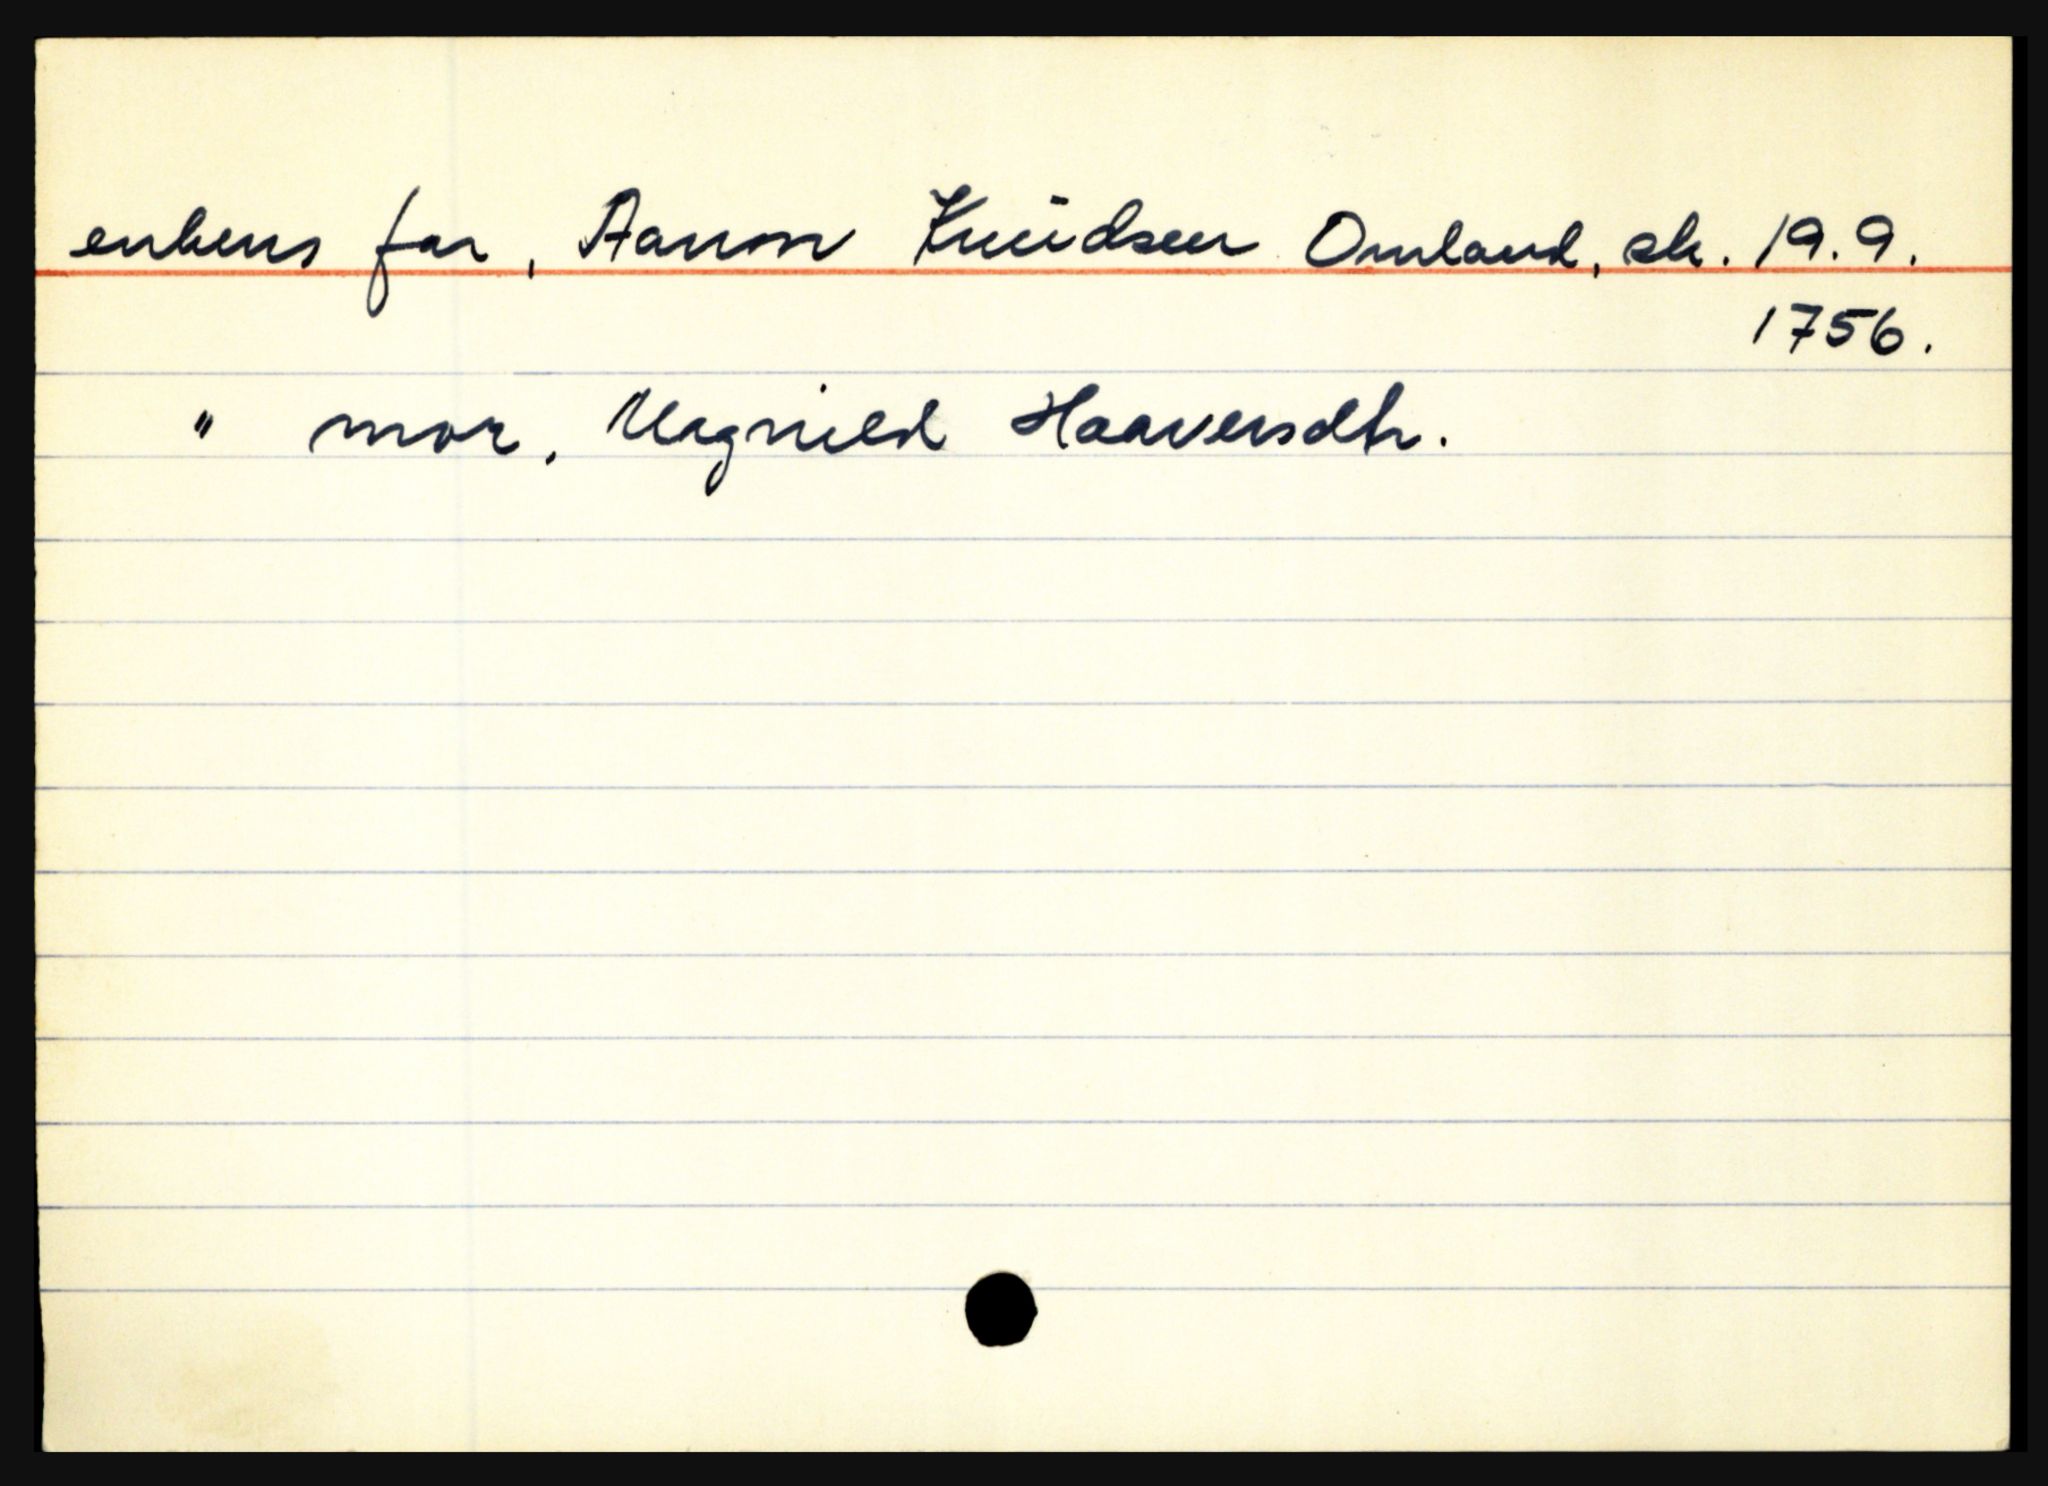 enkens far, Aanon Knudsen Omland, sk. 19.9.
1756.
" mor, Magnild Haaversdtr.